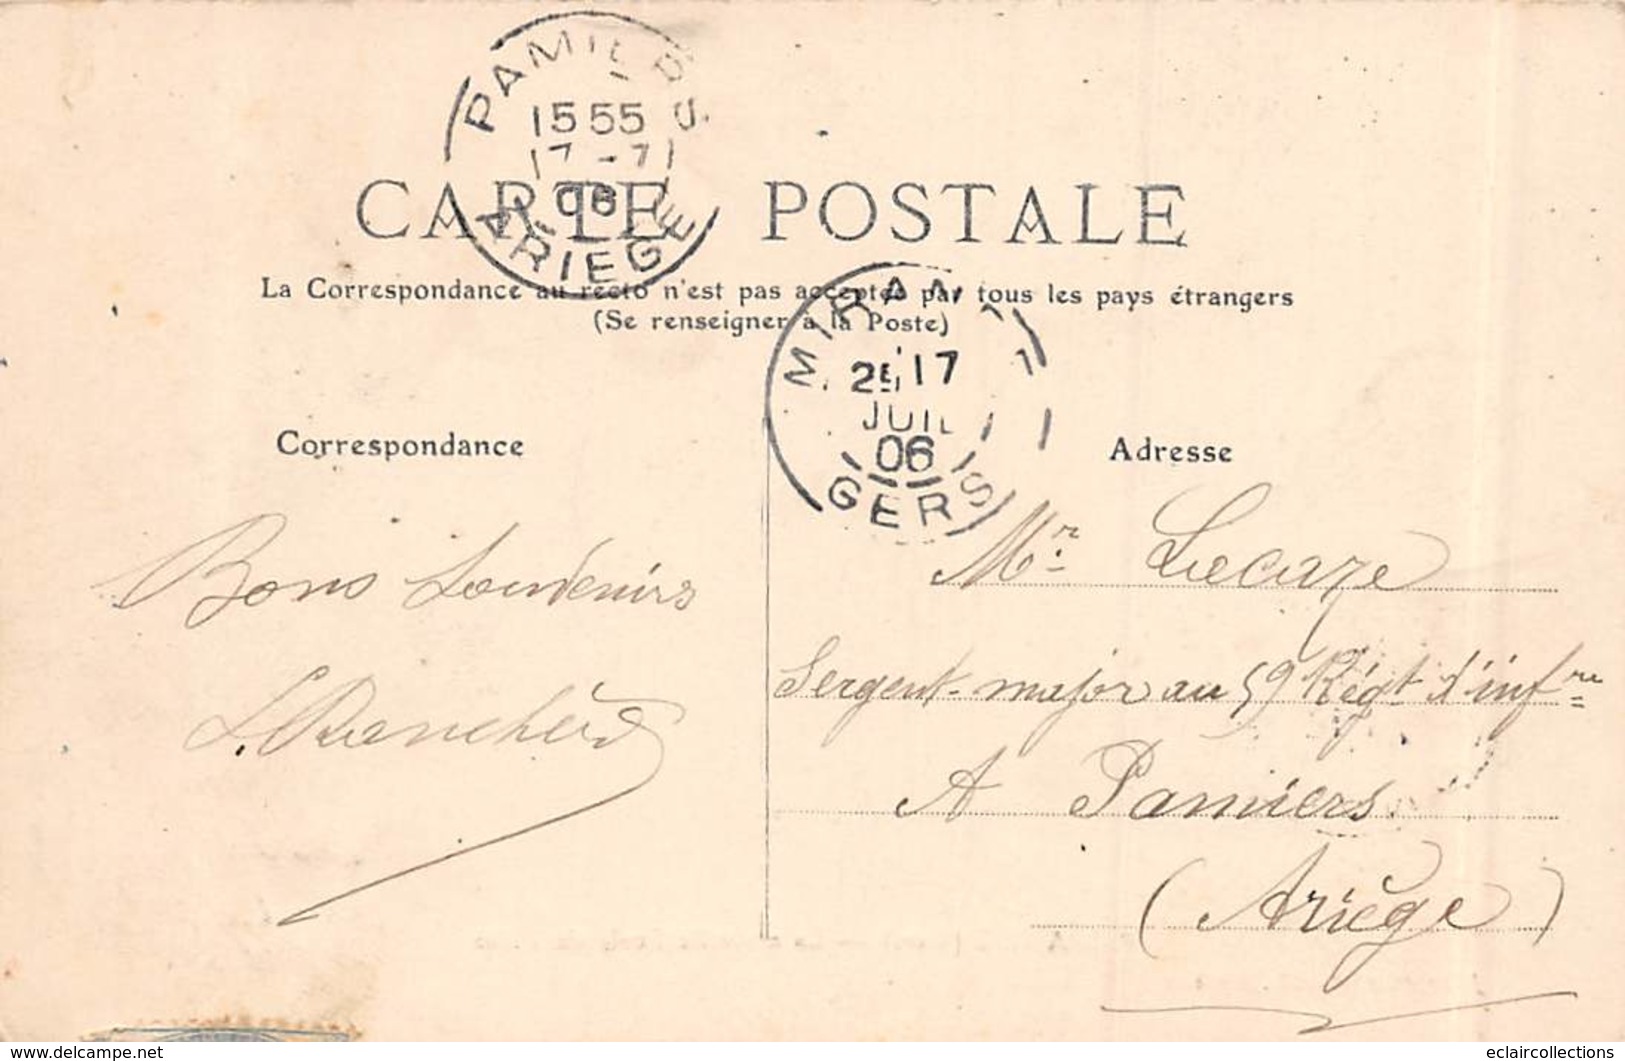 PAMIERS
15 55
17 -7
06
ARIEGE
CARTE POSTALE
La Correspondance au recto n'est pas acceptée par tous les pays étrangers
(Se renseigner à la Poste)
MIRAN
17
JUIL
06
GERS
Correspondance
Adresse
Bons Souvenirs
Mr Lecaze
Sergent-major au 59 Régt d'infrie
A Pamiers
(Ariège)
www.delcampe.net
eclaircollections